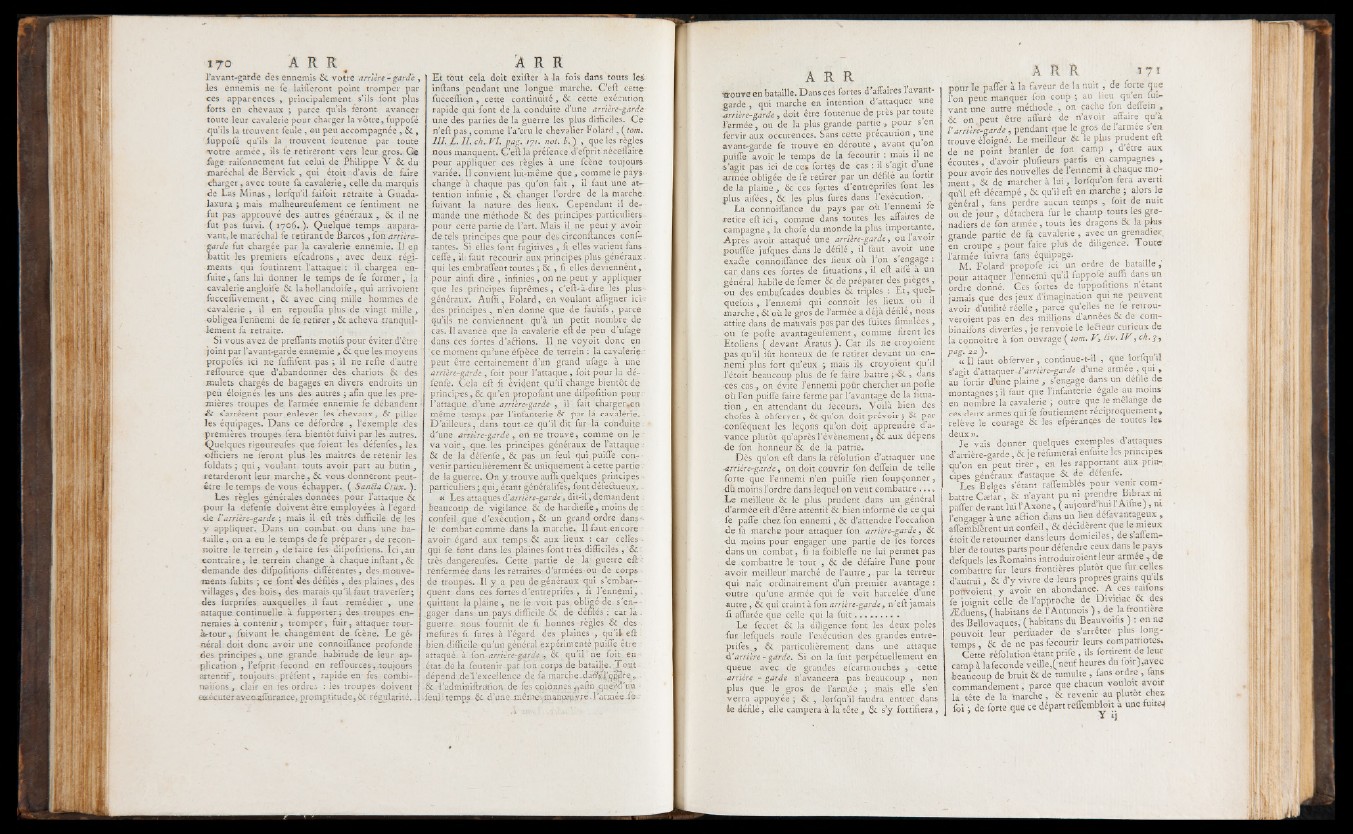 170 A R R
l'avant-garde des ennemis & votre arrière-garde,
les ennemis ne se laisseront point tromper par
ces apparences, principalement s'ils sont plus
forts en chevaux ; parce qu'ils feront avancer
toute leur cavalerie pour charger la vôtre, supposé
qu'ils la trouvent seule, ou peu accompagnée, &,
supposé qu'ils la trouvent soutenue par toute
votre armée, ils se retireront vers leur gros. Ce
sage raisonnement fut celui de Philippe V & du
maréchal de Bervick, qui étoit d'avis de faire
charger, avec toute sa cavalerie, celle du marquis
de Las Minas, lorsqu'il faisoit retraite à Guada-
laxura ; mais malheureusement ce sentiment ne
fut pas approuvé des autres généraux, & il ne
fut pas suivi. (1706.). Quelque temps aupara-
vant, le maréchal se retirant de Barcos, son arrière-
garde fut chargée par la cavalerie ennemie. Il en
battit les premiers escadrons, avec deux régi-
ments qui soutinent l'attaque : il chargea en-
suite, sans lui donner le temps de se former, la
cavalerie angloise & la hollandoise, qui arrivoient
successivement, & avec cinq mille hommes de
cavalerie, il en repoussa plus de vingt mille,
obligea l'ennemi de se retirer, & acheva tranquil-
lement sa retraite.
Si vous avez de pressants motifs pour éviter d'être
joint par l'avant-garde ennemie, & que les moyens
proposés ici ne suffisent pas ; il ne reste d'autre
ressource que d'abandonner des chariots & des
mulets chargés de bagages en divers endroits un
peu éloignés les uns des autres ; afin que les pre-
mières troupes de l'armée ennemie se débandent
& s'arrêtent pour enlever les chevaux, & piller
les équipages. Dans ce désordre, l'exemple des
premières troupes sera bientôt suivi par les autres.
Quelques rigoureuses que soient les défenses, les
officiers ne seront plus les maîtres de retenir les
soldats ; qui, voulant touts avoir part au butin,
retarderont leur marche, & vous donneront peut-
être le temps de vous échapper. ( Sancta Crux. ).
Les règles générales données pour l'attaque &
pour la défense doivent être employées à l'égard
de l'arrière-garde ; mais il est très difficile de les
y appliquer. Dans un combat ou dans une ba-
taille, on a eu le temps de se préparer, de recon-
noître le terrein, de faire ses dispositions. Ici, au
contraire, le terrein change à chaque instant, &
demande des dispositions différentes, des mouve-
ments subits ; ce sont des défilés, des plaines, des
villages, des bois, des marais qu'il faut traverser ;
des surprises auxquelles il faut remédier, une
attaque continuelle à supporter ; des troupes en-
nemies à contenir, tromper, fuir, attaquer tour-
à-tour, suivant le changement de scène. Le gé-
néral doit donc avoir une connoissance profonde
des principes, une grande habitude de leur ap-
plication, l'esprit fecond en ressources, toujours
attentif, toujours présent, rapide en ses combi-
naisons, clair en ses ordres : les troupes doivent
exécuter avec assurance, promptitude, & régularité.
A R R
Et tout cela doit exister à la fois dans touts les
instans pendant une longue marche. C'est cette
succession, cette continuité, & cette exécution
rapide qui font de la conduite d'une arrière-garde
une des parties de la guerre les plus difficiles. Ce
n'est pas, comme l'a cru le chevalier Folard, (tom.
III. L. II. ch. VI. pag. 191. not. b. ), que les règles
nous manquent. C'est la présence d'esprit nécessaire
pour appliquer ces règles à une scène toujours
variée. Il convient lui-même que, comme le pays
change à chaque pas qu'on fait, il faut une at-
tention infinie, & changer l'ordre de la marche
suivant la nature des lieux. Cependant il de-
mande une méthode & des principes particuliers
pour cette partie de l'art. Mais il ne peut y avoir
de tels principes que pour des circonstances cons-
tantes. Si elles sont fugitives, si elles varient sans
cesse, il faut recourir aux principes plus généraux
qui les embrassent toutes ; &, si elles deviennent,
pour ainsi dire, infinies, on ne peut y appliquer
que les principes suprêmes, c'est-à-dire les plus
généraux. Aussi, Folard, en voulant assigner ici
des principes, n'en donne que de fautifs, parce
qu'ils ne conviennent qu'à un petit nombre de
cas. Il avance que la cavalerie est de peu d'usage
dans ces sortes d'actions. Il ne voyoit donc en
ce moment qu'une espèce de terrein : la cavalerie
peut être certainement d'un grand usage à une
arrière-garde, soit pour l'attaque, soit pour la dé-
fense. Cela est si évident qu'il change bientôt de
principes, & qu'en proposant une disposition pour
l'attaque d'une arrière-garde, il fait charger en
même temps par l'infanterie & par la cavalerie.
D'ailleurs, dans tout ce qu'il dit sur la conduite
d'une arrière-garde, on ne trouve, comme on le
va voir, que les principes généraux de l'attaque
& de la défense, & pas un seul qui puisse con-
venir particulièrement & uniquement à cette partie
de la guerre. On y trouve aussi quelques principes
particuliers ; qui, étant généralisés, sont défectueux.
« Les attaques d'arrière-garde, dit-il, demandent
beaucoup de vigilance & de hardiesse, moins de
conseil que d'exécution, & un grand ordre dans
le combat comme dans la marche. Il faut encore
avoir égard aux temps & aux lieux : car celles
qui se font dans les plaines sont très difficiles, &
très dangereuses. Cette partie de la guerre est
renfermée dans les retraites d'armées ou de corps
de troupes. Il y a peu de généraux qui s'embar-
quent dans ces sortes d'entreprises, si l'ennemi,
quittant la plaine, ne le voit pas obligé de s'en-
gager dans un pays difficile & de défilés ; car la
guerre nous fournit de si bonnes règles & des
mesures si sures à l'égard des plaines, qu'il est
bien difficile qu'un général expérimenté puisse être
attaqué à son arrière-garde, & qu'il ne soit en
état de la soutenir par son corps de bataille. Tout
dépend de l'excellence de sa marche dans l'ordre,
& l'administration de ses colonnes, afin que d'un
seul temps & d'une même manœuvre l'armée se
A R R
trouve en bataille. Dans ces sortes d'affaires l'avant-
garde, qui marche en intention d'attaquer une
arrière-garde, doit être soutenue de près par toute
l'armée, ou de la plus grande partie, pour s'en
servir aux occurences. Sans cette précaution, une
avant-garde se trouve en déroute, avant qu'on
puisse avoir le temps de la secourir : mais il ne
s'agit pas ici de ces sortes de cas : il s'agit d'une
armée obligée de se retirer par un défilé au sortir
de la plaine, & ces sortes d'entreprises sont les
plus aisées, & les plus sures dans l'exécution.
La connoissance du pays par où l'ennemi se
retire est ici, comme dans toutes les affaires de
campagne, la chose du monde la plus importante.
Après avoir attaqué une arrière-garde, ou l'avoir
poussée jusques dans le défilé, il faut avoir une
exacte connoissance des lieux où l'on s'engage :
car dans ces sortes de situations, il est aisé à un
général habile de semer & de préparer des pièges,
ou des embuscades doubles & triples : Et, quel-
quefois, l'ennemi qui connoit les lieux où il
marche, & où le gros de l'armée a déjà défilé, nous
attire dans de mauvais pas par des fuites simulées,
ou se poste avantageusement, comme firent les
Etoliens ( devant Aratus ). Car ils ne croyoient
pas qu'il fût honteux de se retirer devant un en-
nemi plus fort qu'eux ; mais ils croyoient qu'il
l'étoit beaucoup plus de se faire battre ; &, dans
ces cas, on évite l'ennemi pour chercher un poste
où l'on puisse faire ferme par l'avantage de la situa-
tion, en attendant du secours. Voilà bien des
choses à observer, & qu'on doit prévoir ; & par
conséquent les leçons qu'on doit apprendre d'a-
vance plutôt qu'après l'évènement, & aux dépens
de son honneur & de la patrie.
Dès qu'on est dans la résolution d'attaquer une
arrière-garde, on doit couvrir son dessein de telle
sorte que l'ennemi n'en puisse rien soupçonner,
du moins l'ordre dans lequel on veut combatre....
Le meilleur & le plus prudent dans un général
d'armée est d'être attentif & bien informé de ce qui
se passe chez son ennemi, & d'attendre l'occasion
de sa marche pour attaquer son arrière-garde, &
du moins pour engager une partie de ses forces
dans un combat, si sa foiblesse ne lui permet pas
de combattre le tout, & de défaire l'une pour
avoir meilleur marché de l'autre, par la terreur
qui naît ordinairement d'un premier avantage :
outre qu'une armée qui se voit harcelée d'une
autre, & qui craint à son arrière-garde, n'est jamais
si assurée que celle qui la suit.........
Le secret & la diligence sont les deux poles
sur lesquels roule l'exécution des grandes entre-
prises, & particulièrement dans une attaque
d'arrière-garde. Si on la suit perpétuellement en
queue avec de grandes escarmouches, cette
arrière-garde n'avancera pas beaucoup, non
plus que le gros de l'armée ; mais elle s'en
verra appuyée ; &, lorsqu'il faudra entrer dans
le défilé, elle campera à la tête, & s'y fortifiera,
A R R 171
pour le passer à la faveur de la nuit, de sorte que
l'on peut manquer son coup ; au lieu qu'en sui-
vant une autre méthode, on cache son dessein,
& on peut être assuré de n'avoir affaire qu'à
l'arrière-garde, pendant que le gros de l'armée s'en
trouve éloigné. Le meilleur & le plus prudent est
de ne point branler de son camp, d'être aux
écoutes, d'avoir plusieurs partis en campagnes,
pour avoir des nouvelles de l'ennemi à chaque mo-
ment, & de marcher à lui, lorsqu'on sera averti
qu'il est décampé, & qu'il est en marche ; alors le
général, sans perdre aucun temps, soit de nuit
ou de jour, détachera sur le champ touts les gre-
nadiers de son armée, touts les dragons & la plus
grande partie de sa cavalerie, avec un grenadier
en croupe, pour faire plus de diligence. Toute
l'armée suivra sans équipage.
M. Folard propose ici un ordre de bataille,
pour attaquer l'ennemi qu'il suppose aussi dans un
ordre donné. Ces sortes de suppositions n'étant
jamais que des jeux d'imagination qui ne peuvent
avoir d'utilité réelle, parce qu'elles ne se retrou-
veroient pas en des millions d'années & de com-
binaisons diverses, je renvoie le lecteur curieux de
la connoître à son ouvrage (tom. V, liv. IV, ch. 3,
pag. 22 ).
« Il faut observer, continue-t-il, que lorsqu'il
s'agit d'attaquer l'arrière-garde d'une armée, qui,
au sortir d'une plaine, s'engage dans un défilé de
montagnes ; il faut que l'infanterie égale au moins
en nombre la cavalerie ; outre que le mélange de
ces deux armes qui se soutiennent réciproquement,
relève le courage & les espérances de toutes les
deux ».
Je vais donner quelques exemples d'attaques
d'arrière-garde, & je résumerai ensuite les principes
qu'on en peut tirer, en les rapportant aux prin-
cipes généraux d'attaque & de défense.
Les Belges s'étant rassemblés pour venir com-
battre Cæsar, & n'ayant pu ni prendre Bibrax ni
passer devant lui l'Axone, ( aujourd'hui l'Aisne ), ni
l'engager à une action dans un lieu désavantageux,
assemblèrent un conseil, & décidèrent que le mieux
étoit de retourner dans leurs domiciles, de s'assem-
bler de toutes parts pour défendre ceux dans le pays
desquels les Romains introduiroient leur armée, de
combattre sur leurs frontières plutôt que sur celles
d'autrui, & d'y vivre de leurs propres grains qu'ils
pouvoient y avoir en abondance. A ces raisons
se joignit celle de l'approche de Divitiac & des
Æduens, (habitans de l'Autunois ), de la frontière
des Bellovaques, ( habitans du Beauvoisis ) : on ne
pouvoit leur persuader de s'arrêter plus long-
temps, & de ne pas secourir leurs compatriotes.
Cette résolution étant prise, ils sortirent de leur
camp à la seconde veille, (neuf heures du soir), avec
beaucoup de bruit & de tumulte, sans ordre, sans
commandement, parce que chacun vouloit avoir
la tête de la marche, & revenir au plutôt chez
soi ; de sorte que ce départ ressembloit à une fuite.
Y ij